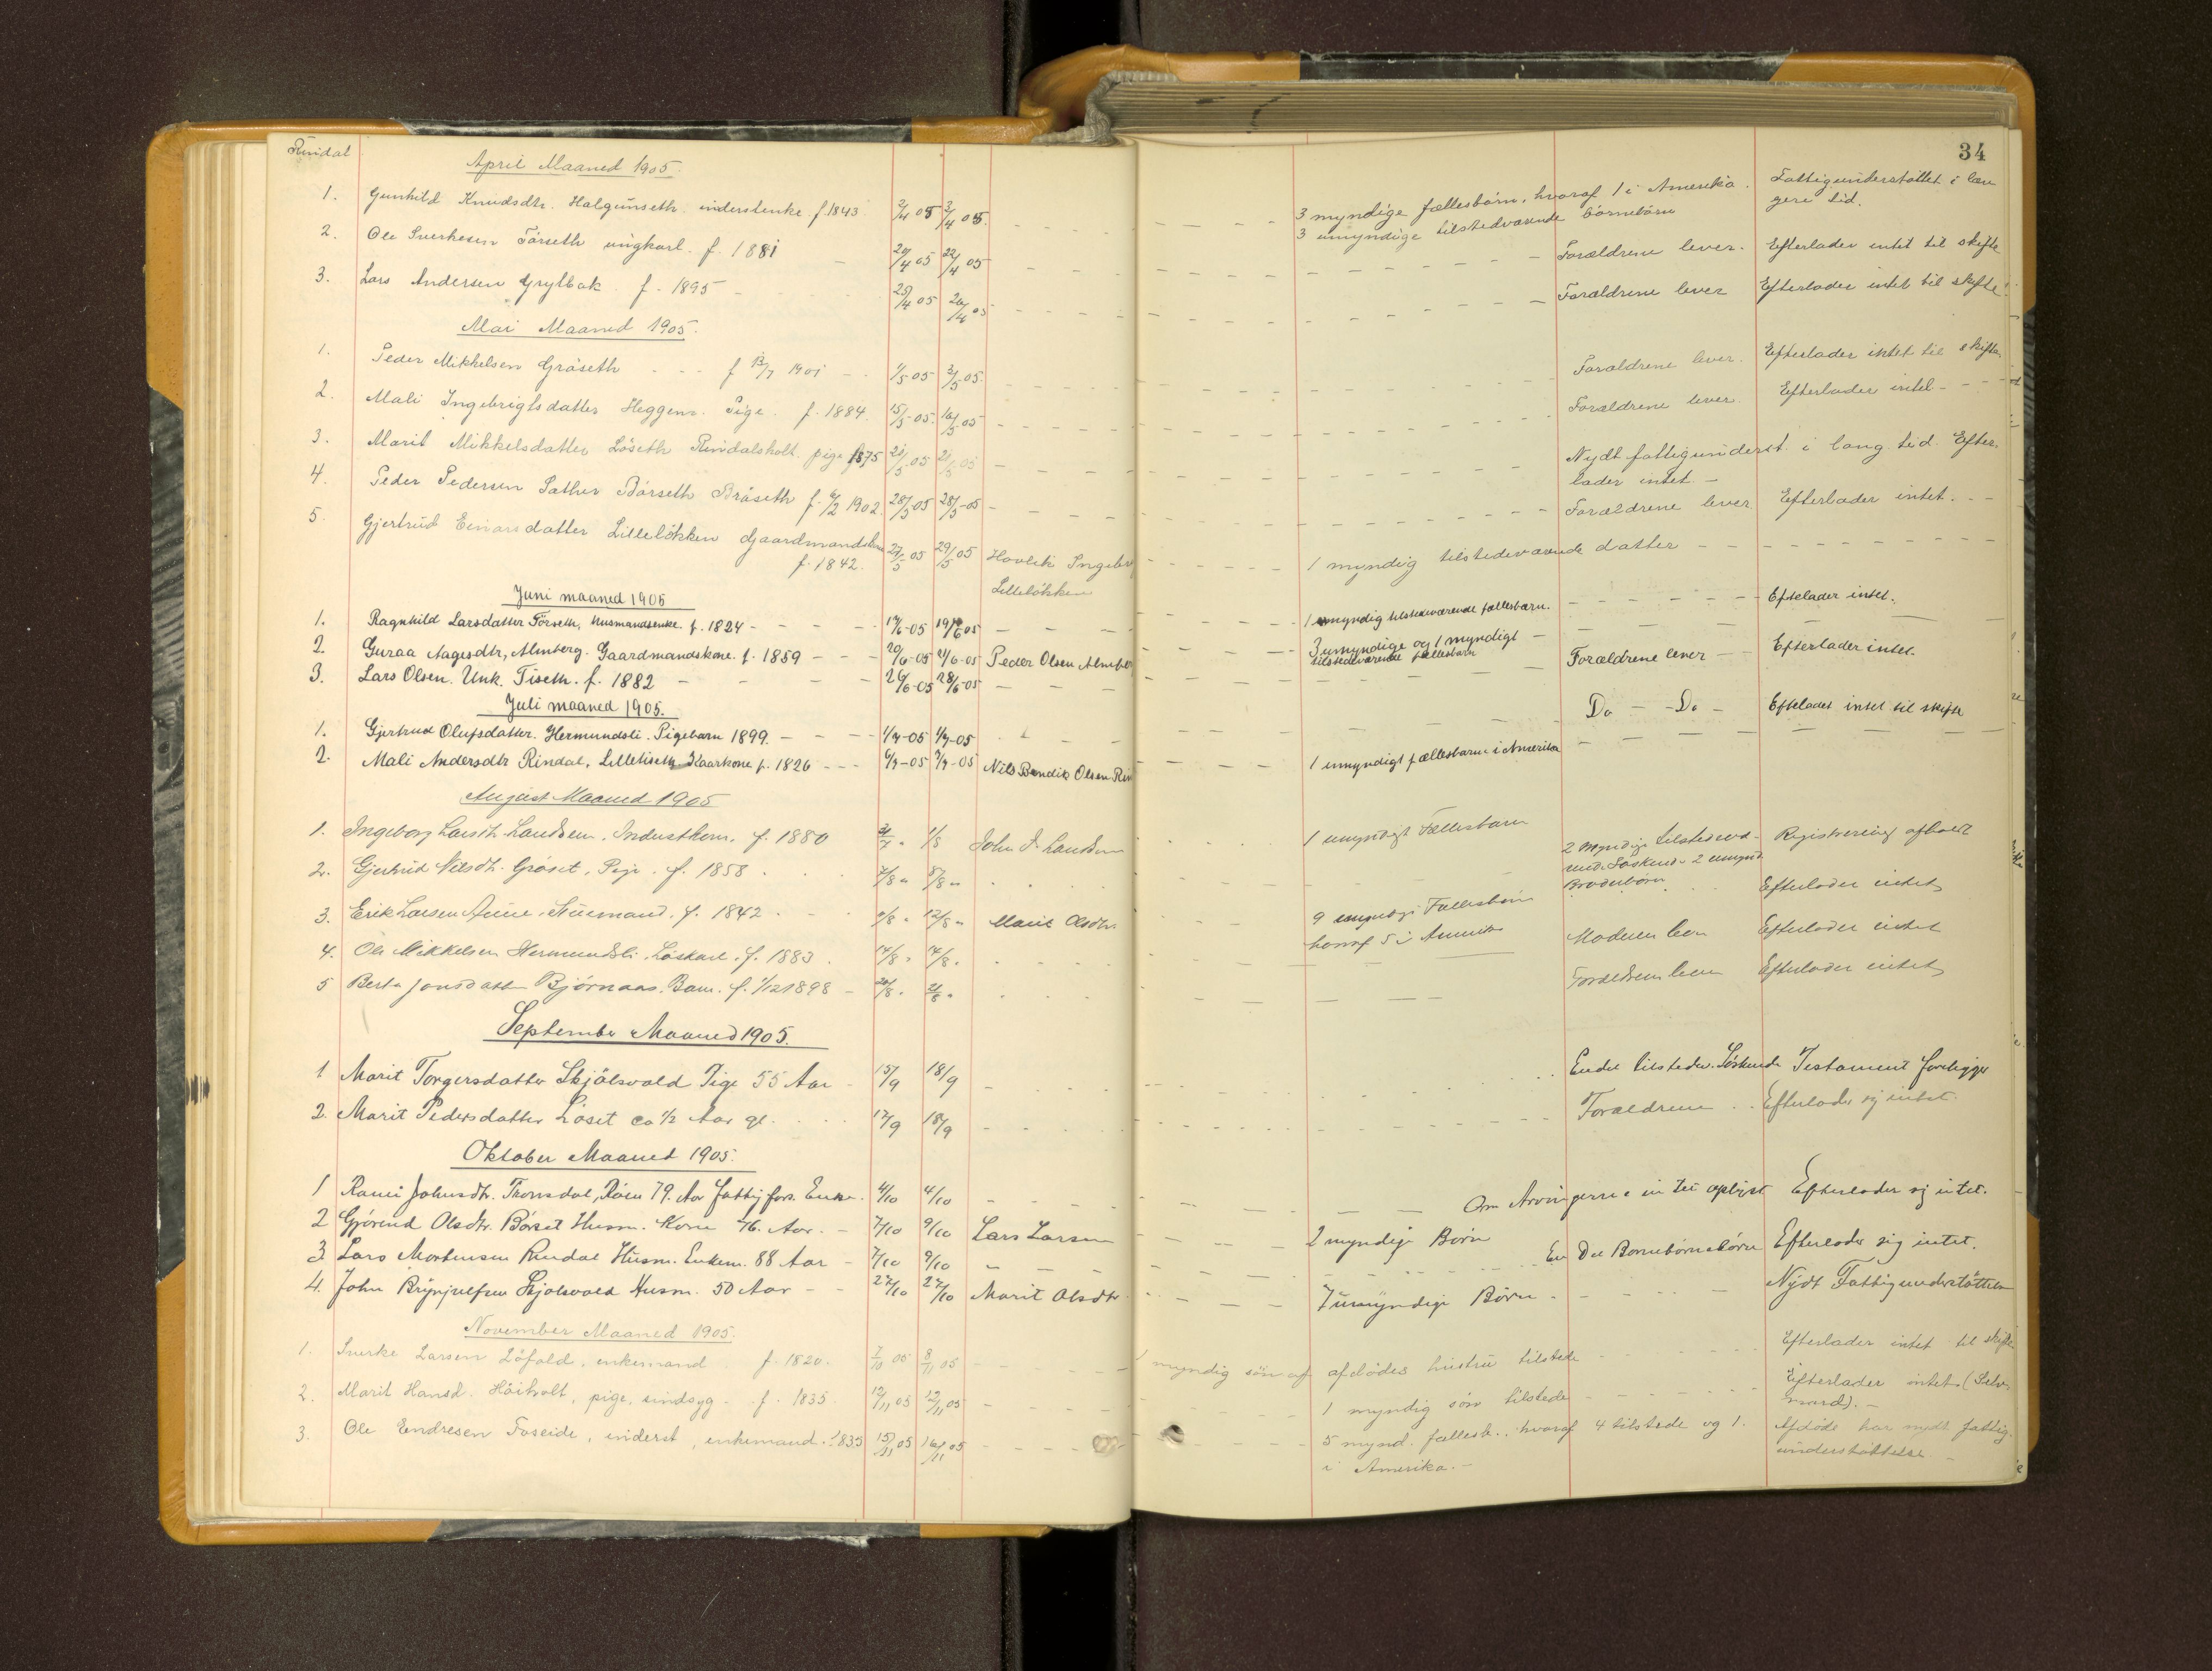 Rindal
34
April Maaned 1905.
1. Gunhild Knudsdtr. Halgunseth inderstenke f. 1843 2/4 05 3/4 05. 3 myndige fællesbörn, hvoraf 1 i Amerika. Fattigunderstöttet i læn
3 umyndige tilstedværende börnebörn gere tid.
2. Ole Sverkesen Törseth ungkarl. f. 1881 20/4 05 22/4 05 Forældrene lever. Efterlader intet til skifte
3. Lars Andersen Grytbak f. 1895 25/4 05 26/4 05 Forældrene lever Efterlader intet til skifte.
Mai Maaned 1905.
1. Peder Mikkelsen Gröseth f 13/7 1901 1/5 05 3/5 05. Forældrene lever. Efterlader intet til skifte
2. Mali Ingebrigtsdatter Heggem. Pige. f. 1884 15/5 05. 16/5 05 Forældrene lever. Efterlader intet
3. Marit Mikkelsdatter Löseth Rindalsholt pige f 1875 21/5 05 21/5 05 Nydt fattigunderst. i lang tid. Efter-
lader intet.
4. Peder Pedersen Sather Börseth Bröseth f. 6/2 1902. 28/5 05 28/5 05 Forældrene lever Efterlader intet.
5. Gjertrud Einarsdatter Lillelökken Gaardmandskone 27/5 05 29/5 05 Hovlik Ingebr 1 myndig tilstedeværende datter
f. 1842. Lillelökken
Juni maaned 1905
1. Ragnhild Larsdatter Törseth, Husmandsenke. f. 1824 17/6-05 19/6 05 1 myndig tilstedeværende fællesbarn. Eftelader intet.
2. Guraa Aagesdtr, Almberg. Gaardmandskone. f. 1859 20/6-05 21/6-05 Peder Olsen Almber 3 umyndige og 1 myndigt
tilstedværende fællesbarn
3. Lars Olsen. Unk. Tiseth. f. 1882 26/6-05 28/6-05 Forældrene lever Efterlader intet.
Juli maaned 1905.
1. Gjertrud Olufsdatter. Hermundsli. Pigebarn 1899. 1/7-05 1/7-05 Do Do Eftelader intet til skifte
2. Mali Andersdtr Rindal, Lilletiseth Kaarkone f. 1826 6/7-05 7/7-05 Nils Bendik Olsen Rin 1 umyndigt fællesbarn i Amerika
August Maaned 1905
1. Ingeborg Larsdtr. Landsem. Inderstkone. f. 1880 31/7 " 1/8 John J. Landsem 1 umyndigt Fællesbarn
2. Gjertrud Nilsdtr. Gröset, Pige. f. 1858 7/8 " 8/8 " 2 myndige tilstedevæ- Registrering afholdt
rende Söskend. 2 umynd.
Broderbörn
3. Erik Larsen Aune. f. 1842 9/8 " 12/8 " Marit Olsdtr. 9 umyndige Fællesbörn Efterlader intet
hvoraf 5 i Amerika
4. Ole Mikkelsen Hermundsli. Löskarl. f. 1883 14/8 " 14/8 " Moderen lever Efterlader intet
5 Berta Jonsdatter Bjørnaas. Barn. f. 1/12 1898 20/8 " 21/8 " Forældrene lever Efterlader intet
September Maaned 1905.
1 Marit Torgersdatter Skjölsvold Pige 55 Aar 15/9 18/9 Endel tilstedev. Söskende Testament foreligger
2. Marit Pedersdatter Löset ca 1/2 Aar gl. 17/9 18/9 Forældrene Efterlader sj intet.
Oktober Maaned 1905.
1 Ranei Johnsdtr. Tronsdal, Röen 79. Aar Fattig fors. Enke. 4/10 4/10 Om Arvingerne intet oplyst Efterlader sj intet.
2 Gjörond Olsdtr. Börset Husm. Kone 76. Aar. 7/10 9/10 Lars Larsen 2 myndige Börn
3 Lars Mortensen Rindal Husm. Enkem. 88 Aar 7/10 9/10 En Del Bornebörnebörn Efterlader sig intet.
4. John Brynjulfsen Skjolsvold Husm. 50 Aar 27/10 27/10 Marit Olsdtr 7 umyndige Börn Nydt Fattigunderstöttelse
November Maaned 1905.
1. Sverke Larsen Löfald, enkemand f. 1820. 7/10 05 8/11 05 1 myndig sön af afdödes hustru tilstede Efterlader intet til skifte
2. Marit Hansd. Höiholt, pige, sindsyg. f. 1835 12/11 05 12/11 05 1 myndig sön tilstede Efterlader intet (Selv-
mord).
3. Ole Endresen Foseide, inderst, enkemand. f 1835 15/11 05 16/11 05 5 mynd. fællesb., hvoraf 4 tilstede og 1. Afdöde har nydt fattig-
i Amerika. understöttelse